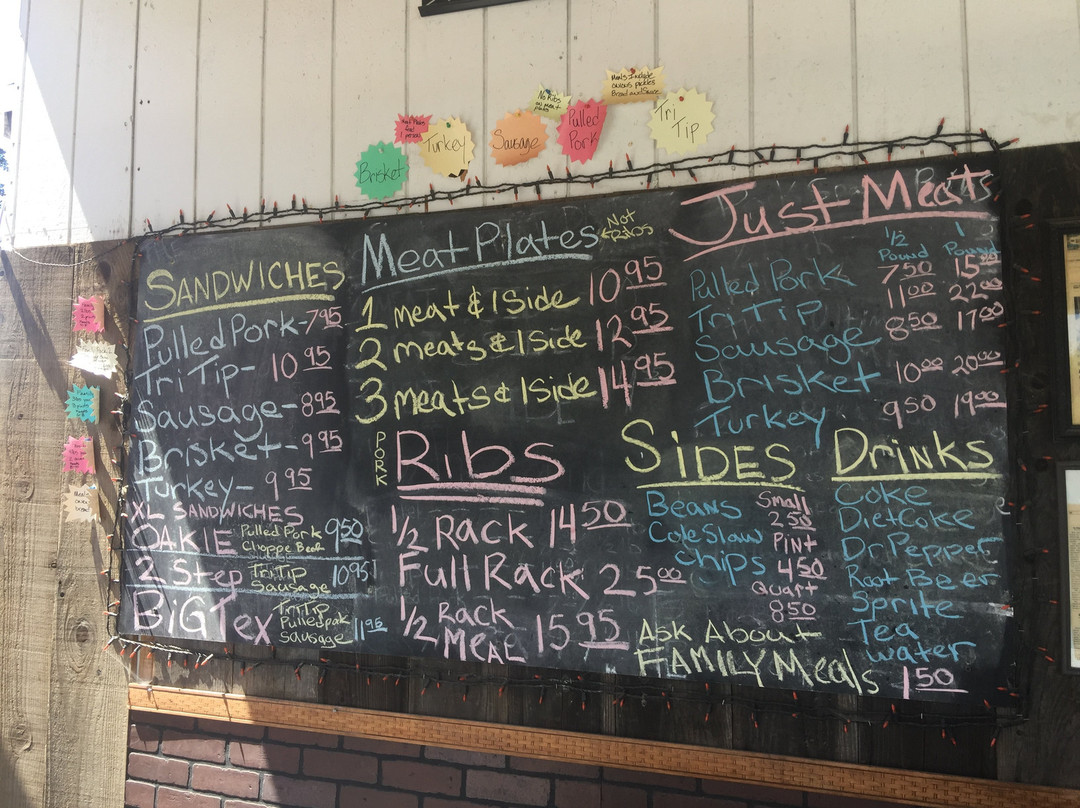 Meals Include
onions pickles
Bread and Sauce
No Ribs
on meat
plates
Brisket
Turkey
Sausage
Pulled
Pork
Tri
Tip
SANDWICHES
Pulled Pork-7 95
Tri Tip- 10 95
Sausage-8 95
Brisket-9 95
Turkey- 9 95
XL SANDWICHES
OAKIE Pulled Pork 9 50
Choppe Beef
2 Step Tri Tip 10 95
Sausage
BiG Tex Tri Tip 11 95
Pulled pak
Sausage
Meat Plates Not
Ribs
1 meat & 1 Side 10 95
2 meats & 1 Side 12 95
3 meats & 1 Side 14 95
PORK
RIBS
1/2 RACK 14 50
Full Rack 25 00
1/2 RACK
MEAL 15 95
Just Meats
1/2 Pound 1 Pound
Pulled Pork 7 50 15 00
Tri Tip 11 00 22 00
Sausage 8 50 17 00
Brisket 10 00 20 00
Turkey 9 50 19 00
SIDES
Beans
Cole Slaw
Chips
Small
2 50
Pint
4 50
Quart
8 50
Ask About
FAMILY Meals
Drinks
Coke
Diet Coke
Dr. Pepper
Root Beer
Sprite
Tea
water
1 50